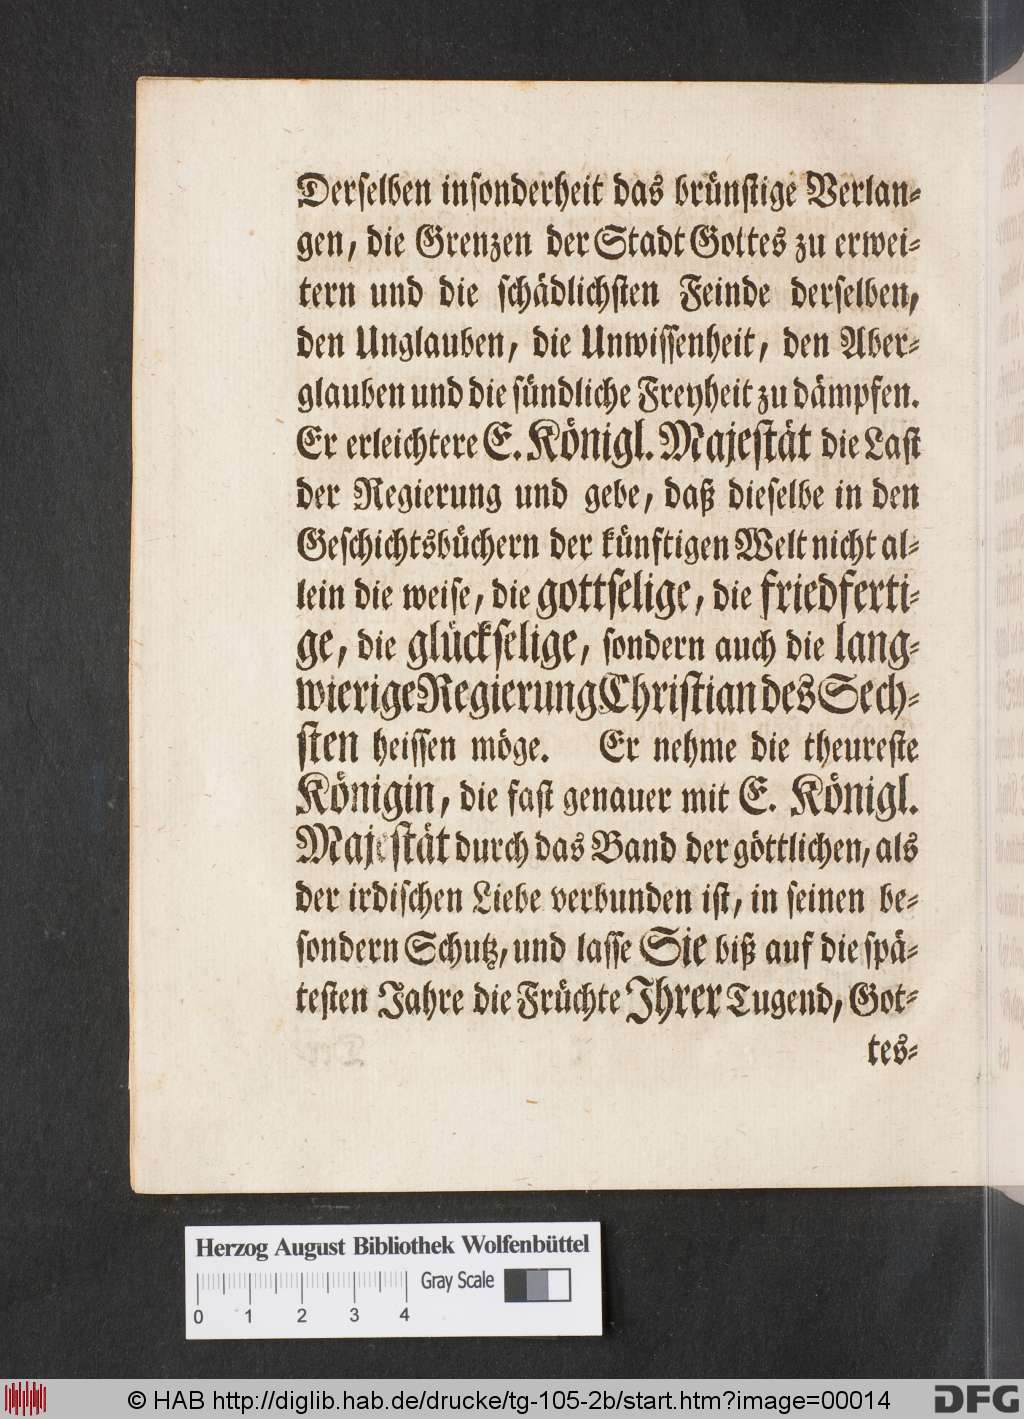 Derselben insonderheit das brünstige Verlan-
gen, die Grenzen der Stadt Gottes zu erwei-
tern und die schädlichsten Feinde derselben,
den Unglauben, die Unwissenheit, den Aber-
glauben und die sündliche Freyheit zu dämpfen.
Er erleichtere E. Königl. Majestät die Last
der Regierung und gebe, daß dieselbe in den
Geschichtsbüchern der künftigen Welt nicht al-
lein die weise, die gottselige, die friedferti-
ge, die glückselige, sondern auch die lang-
wierige Regierung Christian des Sech-
sten heissen möge. Er nehme die theureste
Königin, die fast genauer mit E. Königl.
Majestät durch das Band der göttlichen, als
der irdischen Liebe verbunden ist, in seinen be-
sondern Schutz, und lasse Sie biß auf die spä-
testen Jahre die Früchte Ihrer Tugend, Got-
tes-
Herzog August Bibliothek Wolfenbüttel
Gray Scale
0 1 2 3 4
© HAB http://diglib.hab.de/drucke/tg-105-2b/start.htm?image=00014
DFG